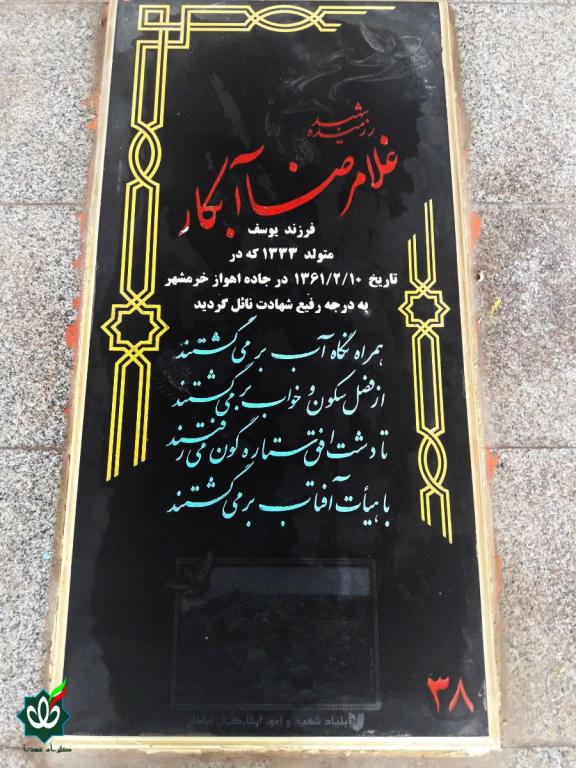 شهید
رزمنده
غلامرضا آبکار
فرزند یوسف
متولد ۱۳۳۳ که در
تاریخ ۱۳۶۱/۲/۱۰ در جاده اهواز خرمشهر
به درجه رفیع شهادت نائل گردید
همراه نگاه آب برمی‌گشتند
از فصل سکون و خواب برمی‌گشتند
تا دشت افق ستاره گون می‌رفتند
با هیأت آفتاب برمی‌گشتند
بنیاد شهید و امور ایثارگران آبادان
۳۸
گلزار شهدا